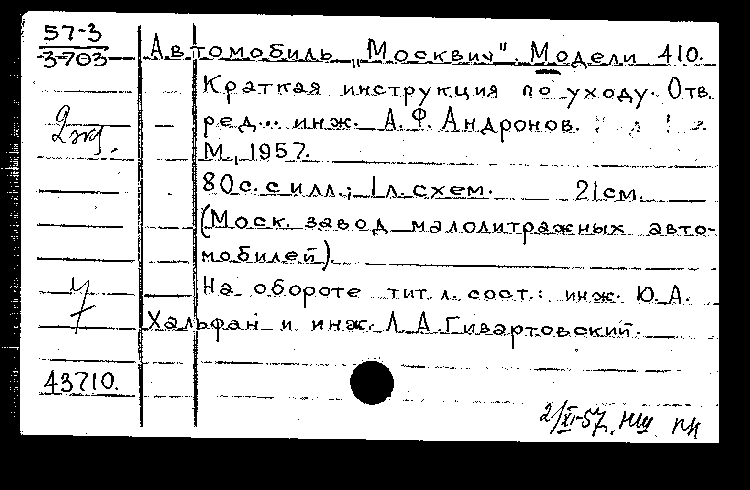 57-3
3-703
Автомобиль „Москвич". Модели 410.
Краткая инструкция по уходу. Отв.
ред... инж. А.Ф. Андронов.
2 экз.
М., 1957.
80 с. с илл.; 1 л. схем. 21 см.
(Моск. завод малолитражных авто-
мобилей).
На обороте тит. л. сост.: инж. Ю.А.
Хальфан и инж. Л.А. Гивартовский.
43710.
2/XI-57